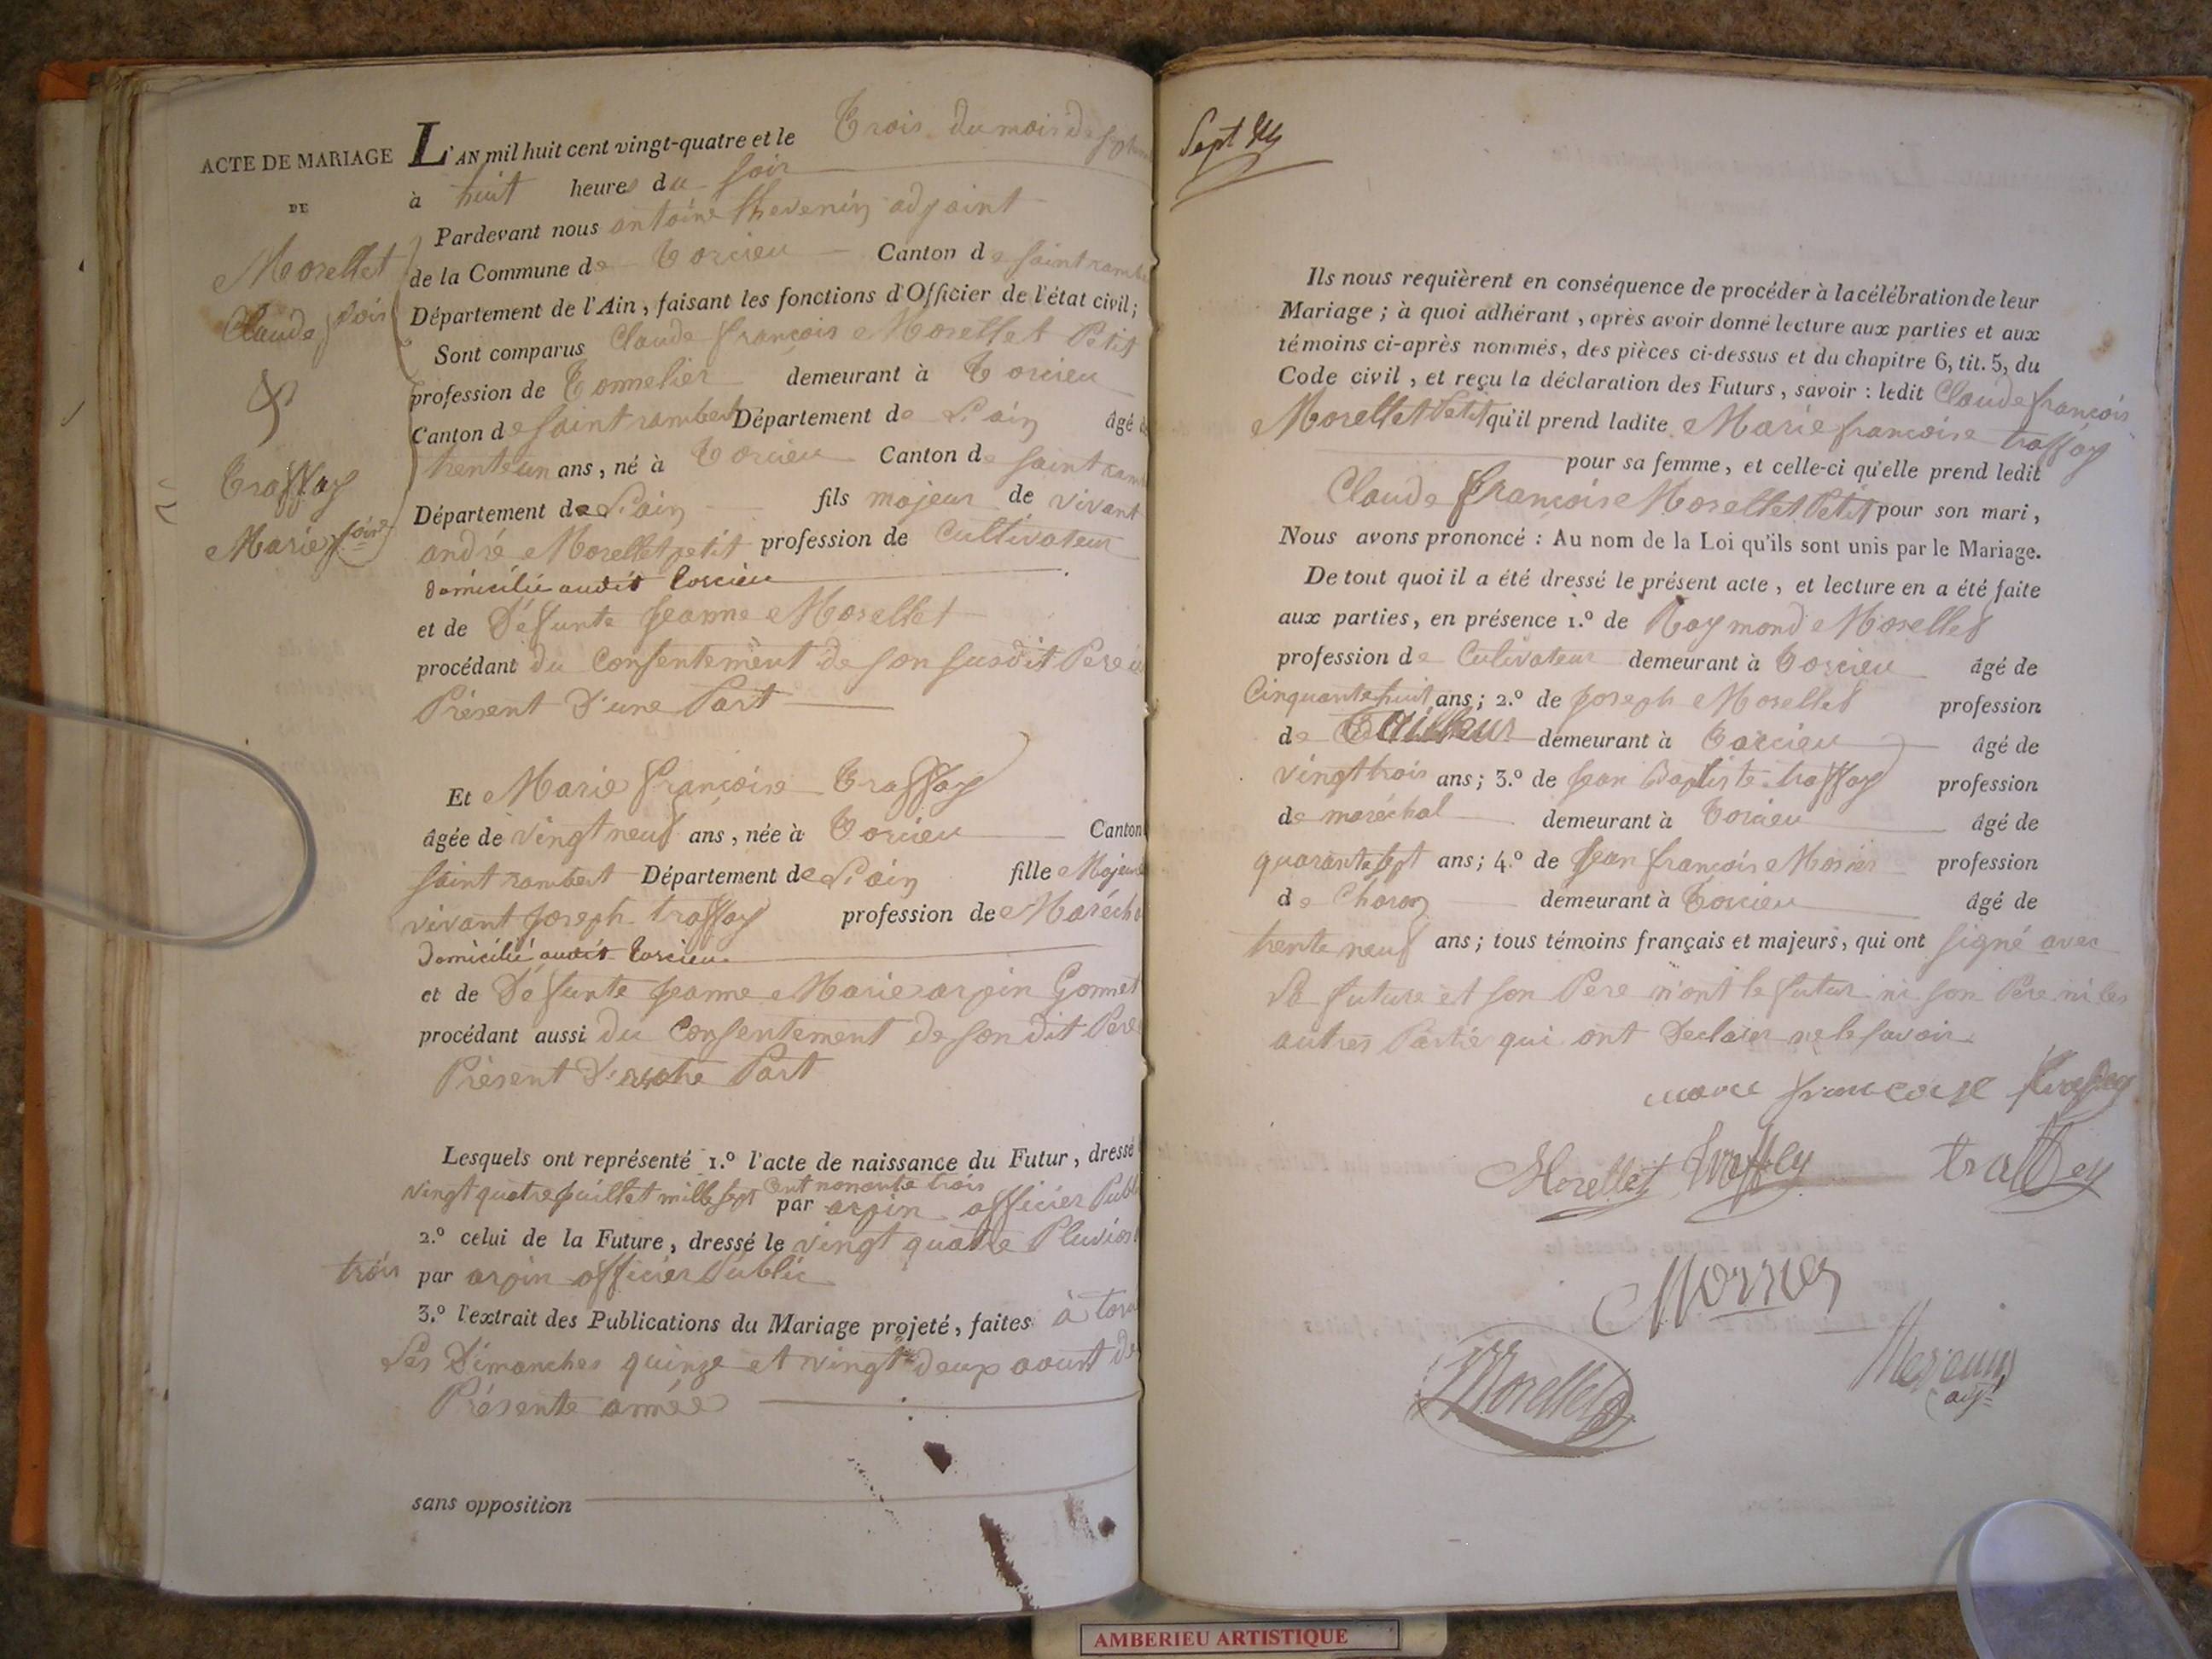 ACTE DE MARIAGE
DE
Morellet
Claude fois
&
Traffay
Marie foise
L'AN mil huit cent vingt-quatre et le Trois du mois de
à huit heures du soir
Pardevant nous antoine thevenin adjoint
de la Commune de Torcieu Canton de saint ramb
Département de l'Ain, faisant les fonctions d'Officier de l'état civil;
Sont comparus Claude françois Morellet Petit
profession de Tonnelier demeurant à Torcieu
Canton de saint rambert Département de L'ain âgé de
trente un ans, né à Torcieu Canton de saint ramb
Département de L'ain fils majeur de vivant
andré Morellet petit profession de Cultivateur
domicilié audit Torcieu
et de Défunte jeanne Morellet
procédant du Consentement de son susdit Pere ici
Présent D'une Part
Et Marie françoise Traffay
âgée de vingt neuf ans, née à Torcieu Canton
saint rambert Département de L'ain fille Majeure
vivant joseph traffay profession de Marécha
domicilié audit Torcieu
et de Défunte jeanne Marie arpin Gonnet
procédant aussi du Consentement de son dit Pere
Présent D'autre Part
Lesquels ont représenté 1.º l'acte de naissance du Futur, dressé
vingt quatre juillet mille sept Cent nonante trois
par arpin officier Publ
2.º celui de la Future, dressé le vingt quatre Pluvios
trois par arpin officier Public
3.º l'extrait des Publications du Mariage projeté, faites à torci
Les Dimanches quinze et vingt deux aoust de
Présente année
sans opposition
Sept 24
Ils nous requièrent en conséquence de procéder à la célébration de leur
Mariage; à quoi adhérant, après avoir donné lecture aux parties et aux
témoins ci-après nommés, des pièces ci-dessus et du chapitre 6, tit. 5, du
Code civil, et reçu la déclaration des Futurs, savoir: ledit Claude françois
Morellet Petit qu'il prend ladite Marie françoise traffay
pour sa femme, et celle-ci qu'elle prend ledit
Claude françoise Morellet Petit pour son mari,
Nous avons prononcé: Au nom de la Loi qu'ils sont unis par le Mariage.
De tout quoi il a été dressé le présent acte, et lecture en a été faite
aux parties, en présence 1.º de Raymond Morellet
profession de Cultivateur demeurant à Torcieu âgé de
Cinquante huit ans; 2.º de joseph Morellet profession
de Tailleur demeurant à Torcieu âgé de
vingt trois ans; 3.º de jean Baptiste traffay profession
de maréchal demeurant à Torcieu âgé de
quarante sept ans; 4.º de jean françois Mornier profession
de Charon demeurant à Torcieu âgé de
trente neuf ans; tous témoins français et majeurs, qui ont signé avec
La future et son Pere n'ont le futur ni son Pere ni les
autres Partie qui ont Declarer ne le savoir
marie francoise traffey
Morellet traffey traffey
Mornier
Morellet
thevenin
adj
AMBERIEU ARTISTIQUE